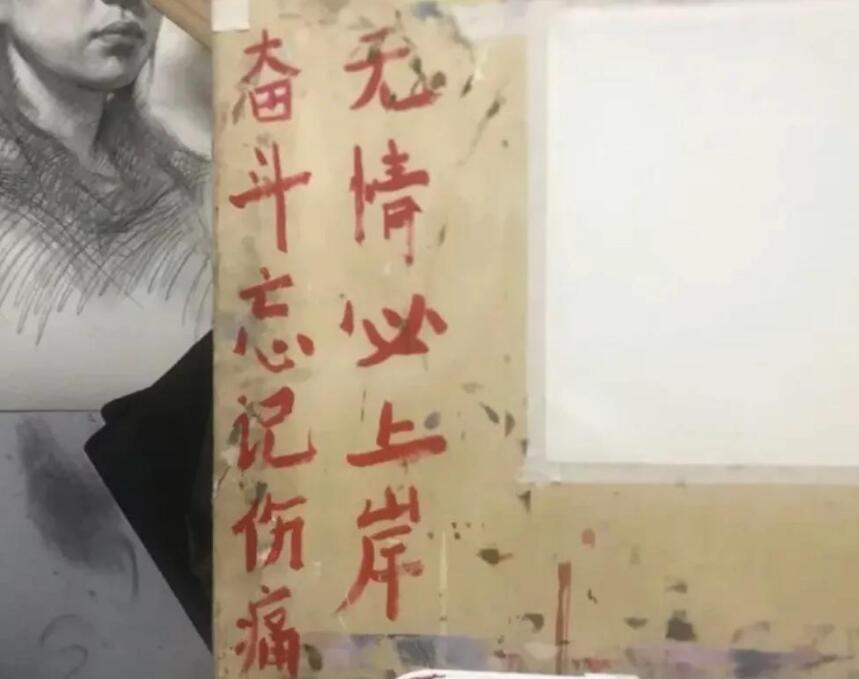 无情必上岸
奋斗忘记伤痛